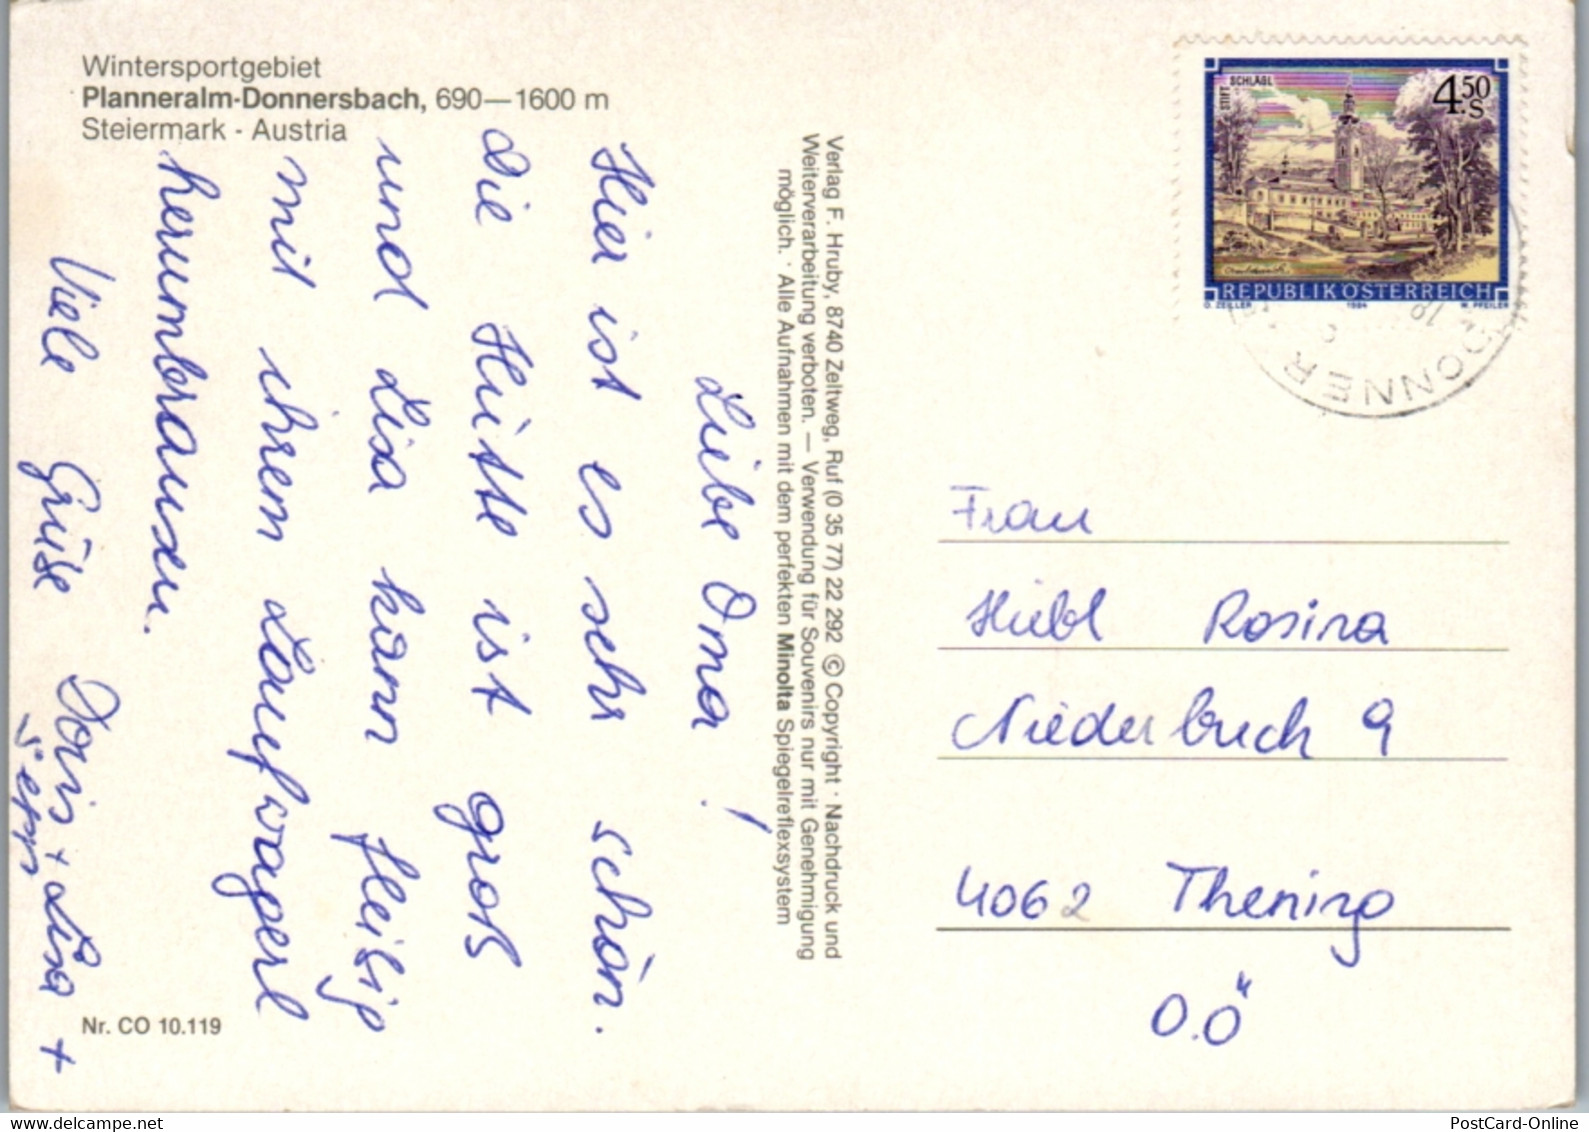 Wintersportgebiet
Planneralm-Donnersbach, 690—1600 m
Steiermark - Austria
Liebe Oma!
Hier ist es sehr schön.
Die Hütte ist groß
und Lisa kann fleißig
mit ihrem Laufwagerl
herumbrausen.
Viele Grüße Doris + Lisa +
Sepp
Nr. CO 10.119
Verlag F. Hruby, 8740 Zeltweg, Ruf (0 35 77) 22 292 © Copyright · Nachdruck und
Weiterverarbeitung verboten. — Verwendung für Souvenirs nur mit Genehmigung
möglich. · Alle Aufnahmen mit dem perfekten Minolta Spiegelreflexsystem
STIFT SCHLÄGL
4.50 S
REPUBLIK ÖSTERREICH
O. ZEILLER 1984 W. PFEILER
DONNER
Frau
Hiebl Rosina
Niederbuch 9
4062 Thening
O.Ö
PostCard-Online